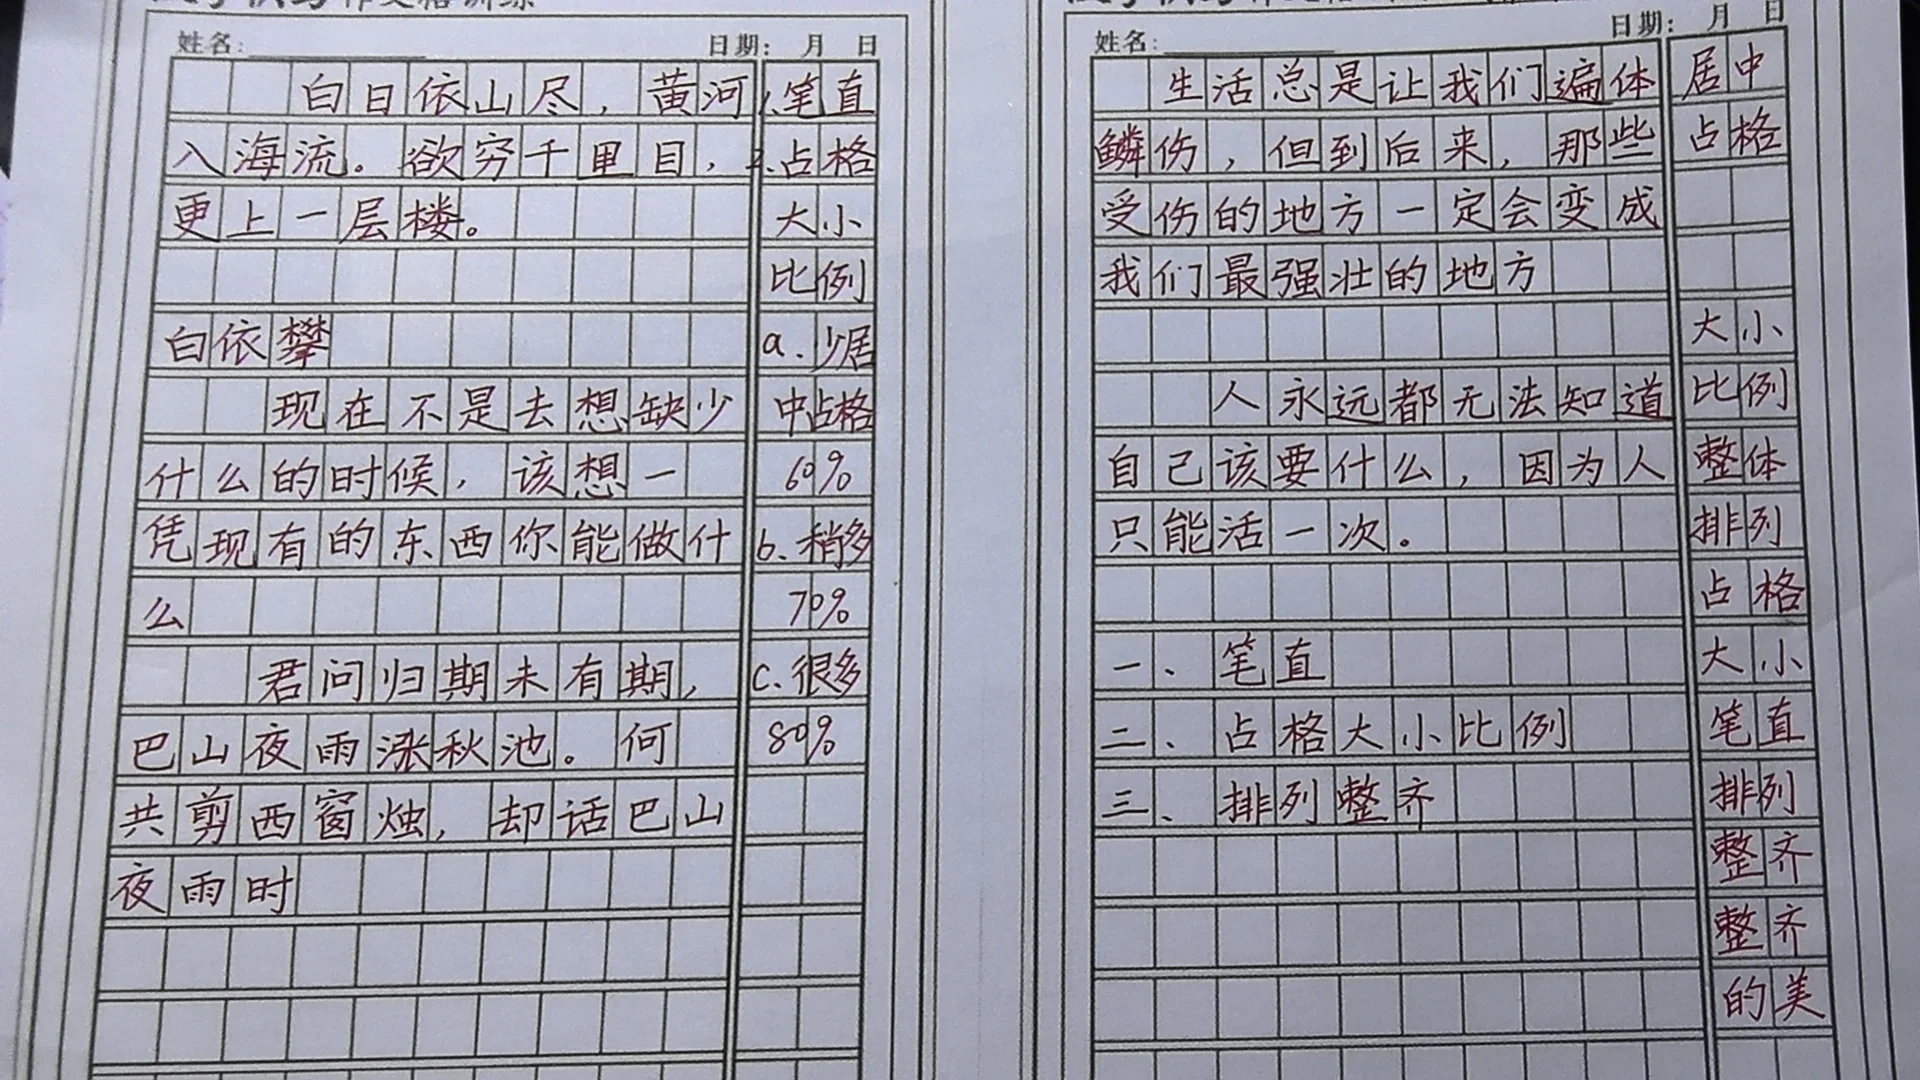 姓名:
日期: 月 日
白日依山尽，黄河
入海流。欲穷千里目，
更上一层楼。
白依攀
现在不是去想缺少
什么的时候，该想一
凭现有的东西你能做什
么
君问归期未有期，
巴山夜雨涨秋池。何
共剪西窗烛，却话巴山
夜雨时
1.笔直
2.占格
大小
比例
a.少居
中占格
60%
b.稍多
70%
c.很多
80%
姓名:
日期: 月 日
生活总是让我们遍体
鳞伤，但到后来，那些
受伤的地方一定会变成
我们最强壮的地方
人永远都无法知道
自己该要什么，因为人
只能活一次。
一、笔直
二、占格大小比例
三、排列整齐
居中
占格
大小
比例
整体
排列
占格
大小
笔直
排列
整齐
整齐
的美